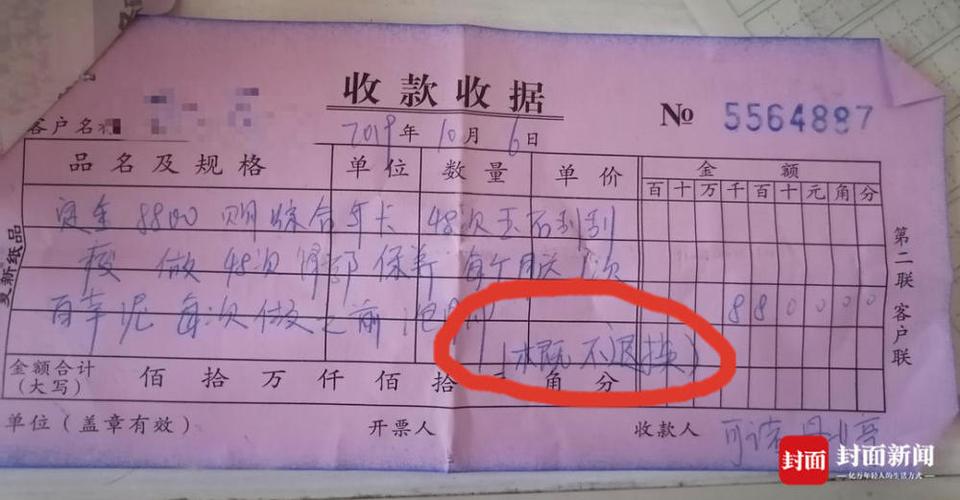 收款收据
№ 5564887
客户名
2019年10月6日
品名及规格 单位 数量 单价 金额
百 十 万 千 百 十 元 角 分
定金8800 购综合年卡 48次玉石刮刮
瘦 做48次 保养 每个月送1次
880000
百草泥 每次做之前泡
(概不退换)
金额合计
(大写) 佰 拾 万 仟 佰 拾 角 分
单位(盖章有效) 开票人 收款人
第二联 客户联
复新纸品
封面 封面新闻
亿万年轻人的生活方式